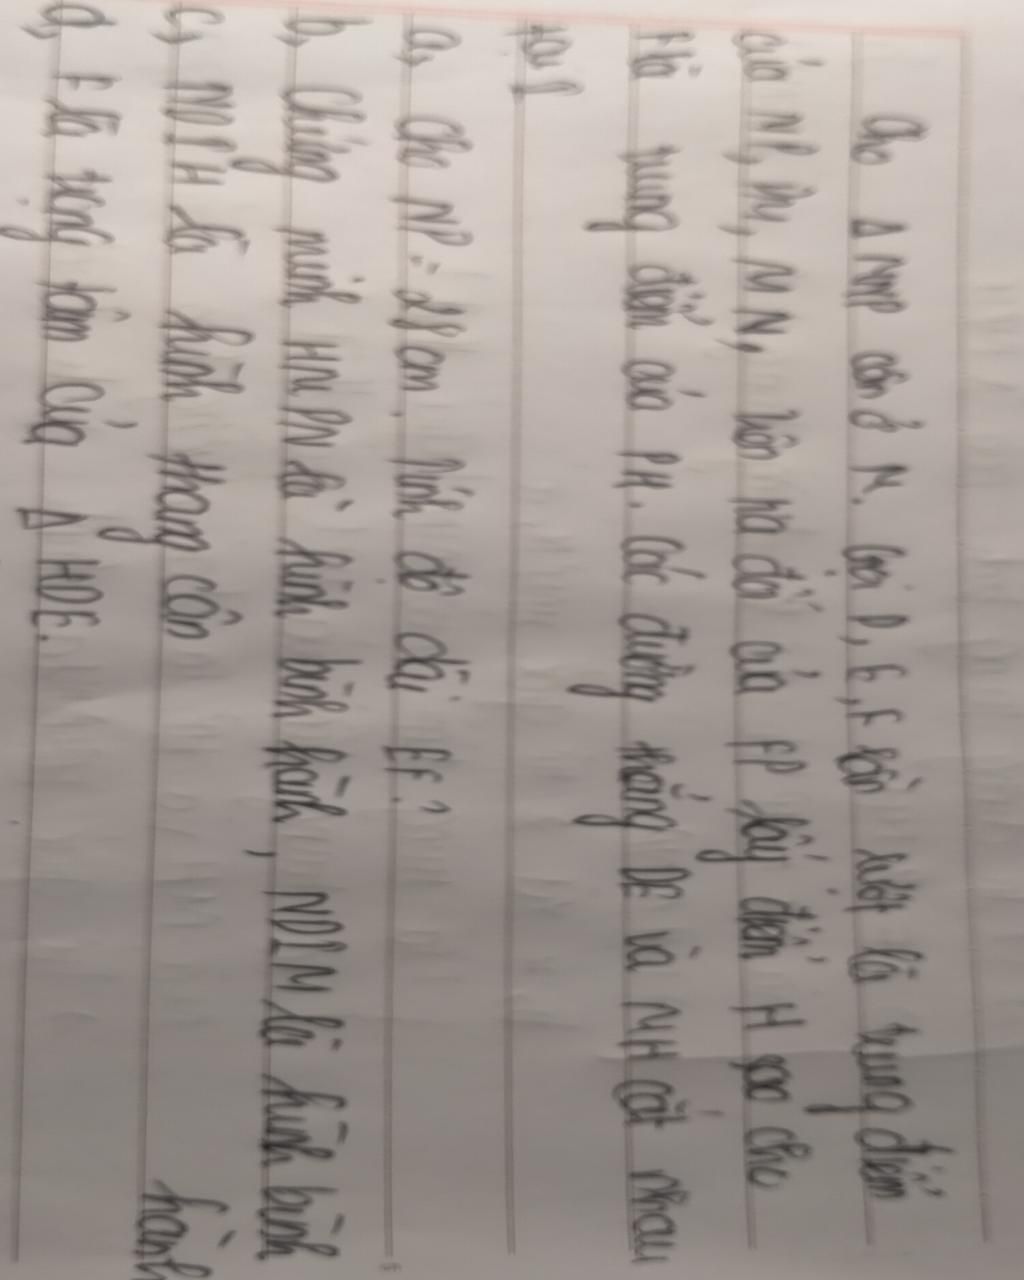 Cho Δ MNP cân ở M. Gọi D, E, F lần lượt là trung điểm
của NP, PM, MN, trên tia đối của FP lấy điểm H sao cho
F là trung điểm của PH. Các đường thẳng DE và MH cắt nhau
tại I
a, Cho NP = 28 cm. Tính độ dài EF?
b, Chứng minh HMPN là hình bình hành, NDIM là hình bình
hành
c, NDIH là hình thang cân
d, F là trọng tâm của Δ HDE.